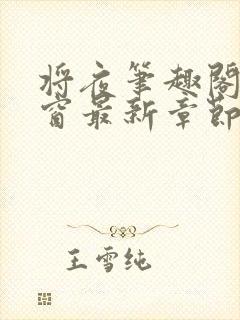 将夜笔趣阁
窗最新章節
王雪纯